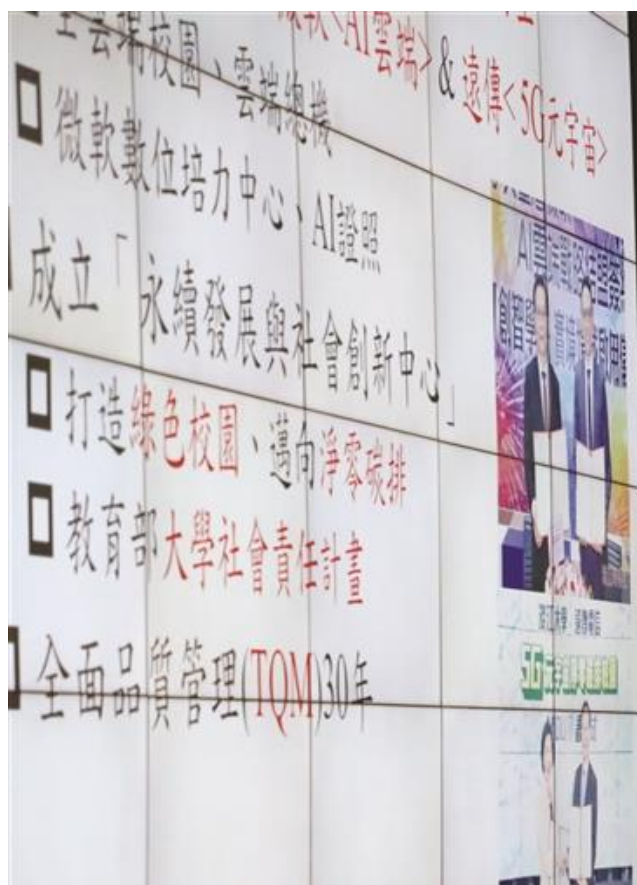 微軟<AI雲端> & 遠傳<5G元宇宙>
全雲端校園、雲端總機
微軟數位培力中心、AI證照
成立「永續發展與社會創新中心」
打造綠色校園、邁向淨零碳排
教育部大學社會責任計畫
全面品質管理(TQM)30年
5G